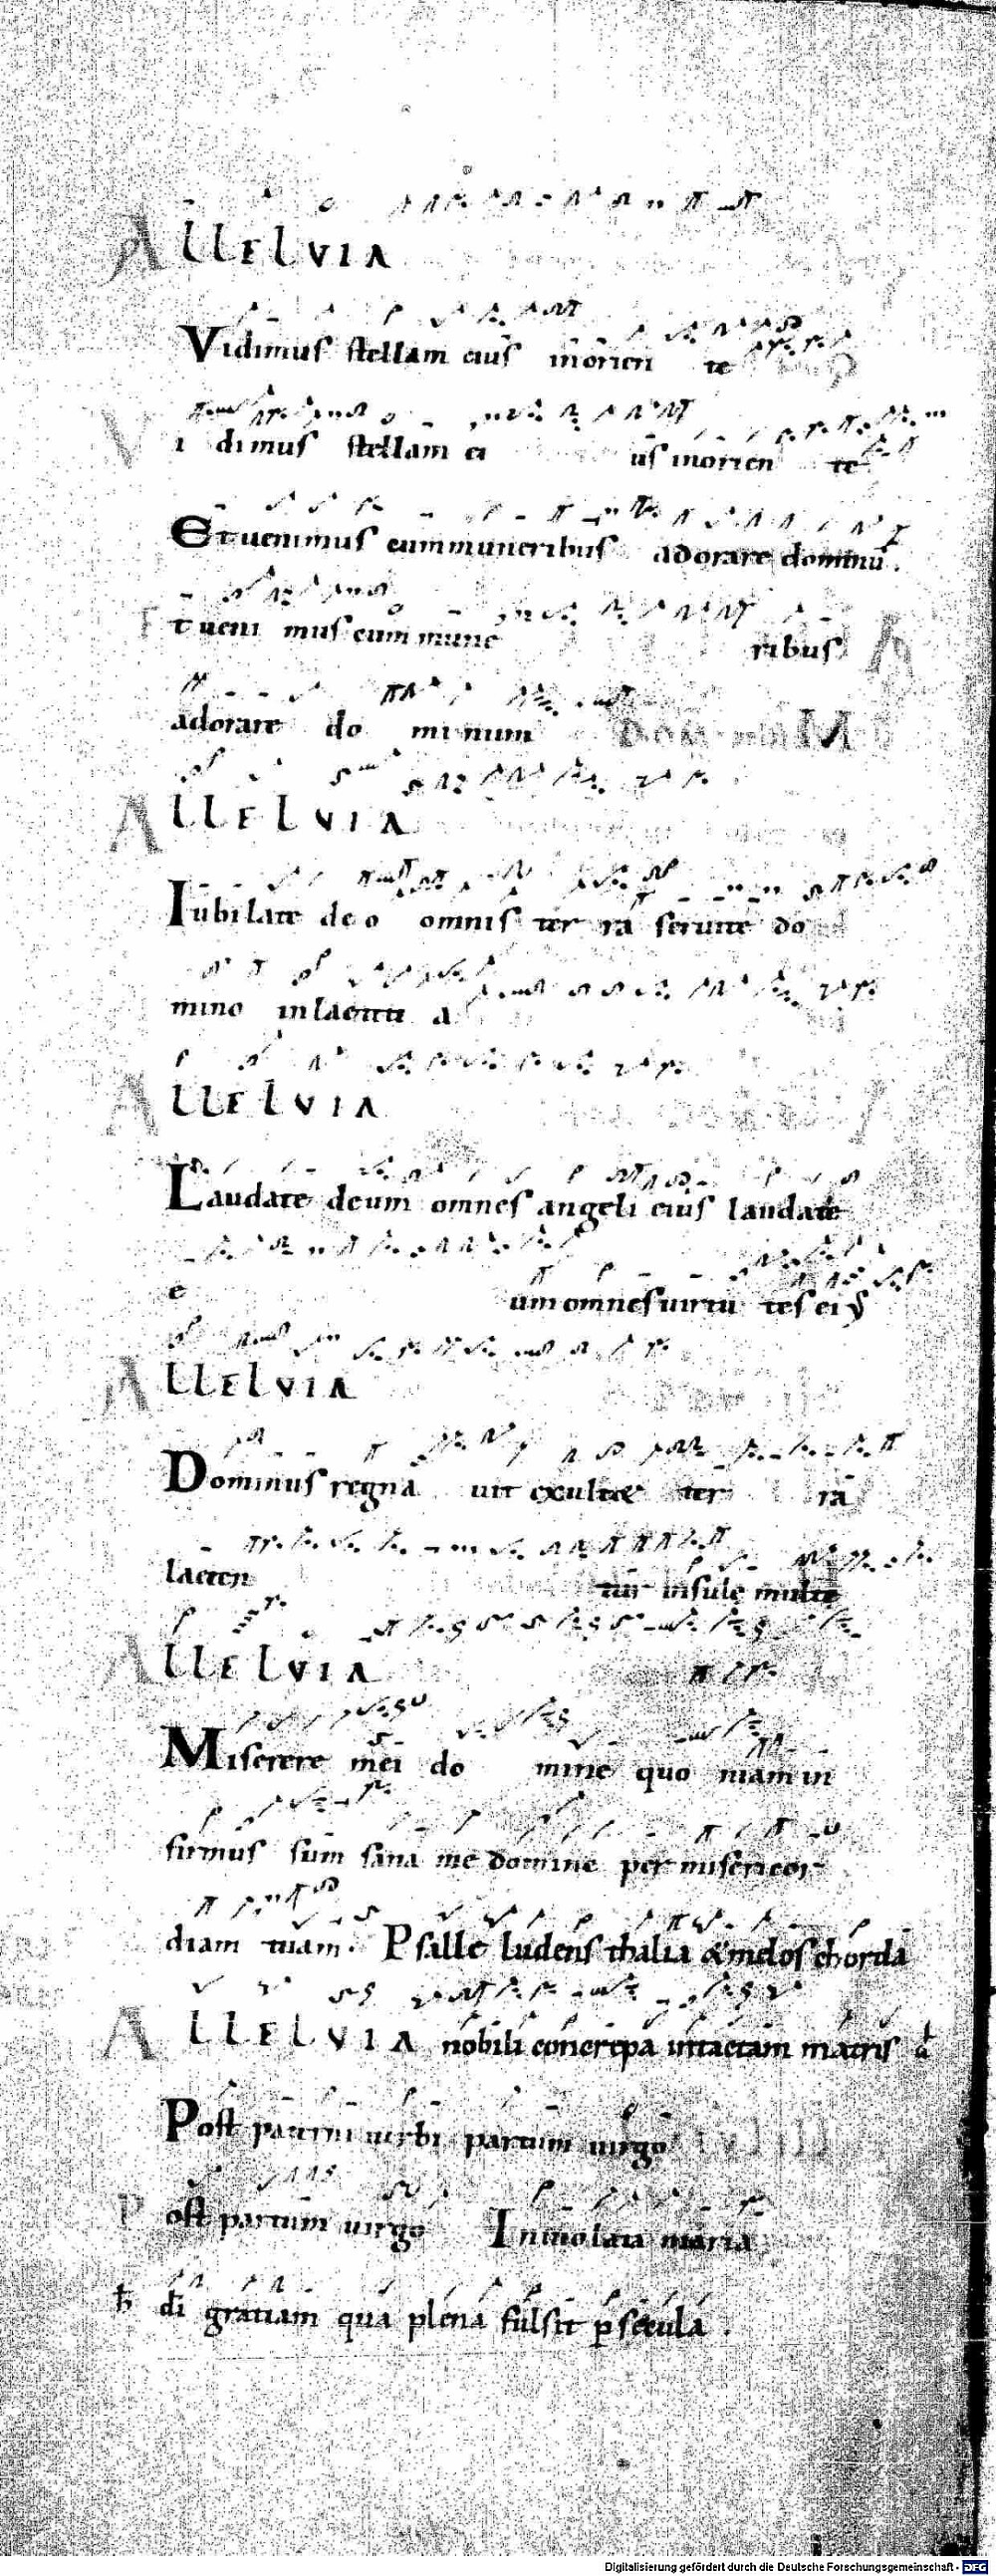 ALLELVIA
Vidimus stellam eius inorien te
Vi dimus stellam ei us inorien te
Et uenimus cummuneribus adorare dominu.
Et ueni mus cum mune ribus
adorare do mi num
ALLELVIA
Iubilate deo omnis ter ra seruite do
mino inlaetiti a
ALLELVIA
Laudate deum omnes angeli eius laudate
e um omnes uirtu tes ei9
ALLELVIA
Dominus regna uit exultet ter ra
laeten tur insulę multe
ALLELVIA
Miserere mei do mine quo niam in
firmus sum sana me domine per misericor
diam tuam. Psalle ludens thalia & melos chorda
ALLELVIA nobili concrepa intactam matris d
Post partum uirgo
Post partum uirgo Inuiolata maria
gratiam qua plena fulsit secula.
Digitalisierung gefördert durch die Deutsche Forschungsgemeinschaft - DFG